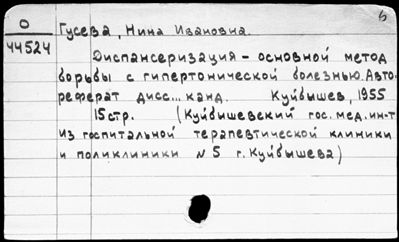 б
О
44524
Гусева, Нина Ивановна.
Диспансеризация - основной метод
борьбы с гипертонической болезнью. Авто-
реферат дисс... канд. Куйбышев, 1955
15 стр. (Куйбышевский гос. мед. ин-т
из госпитальной терапевтической клиники
и поликлиники № 5 г. Куйбышева)